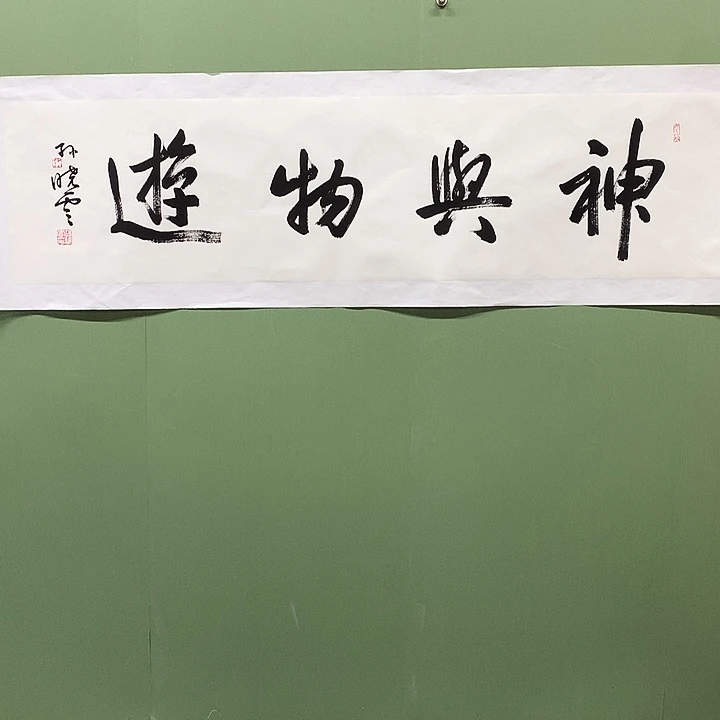 神與物遊
孙晓云